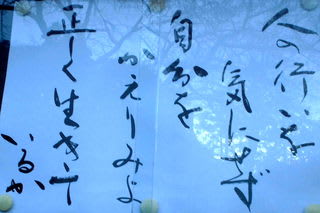 人の行いを
気にせず
自分を
かえりみよ
正しく生きて
いるか